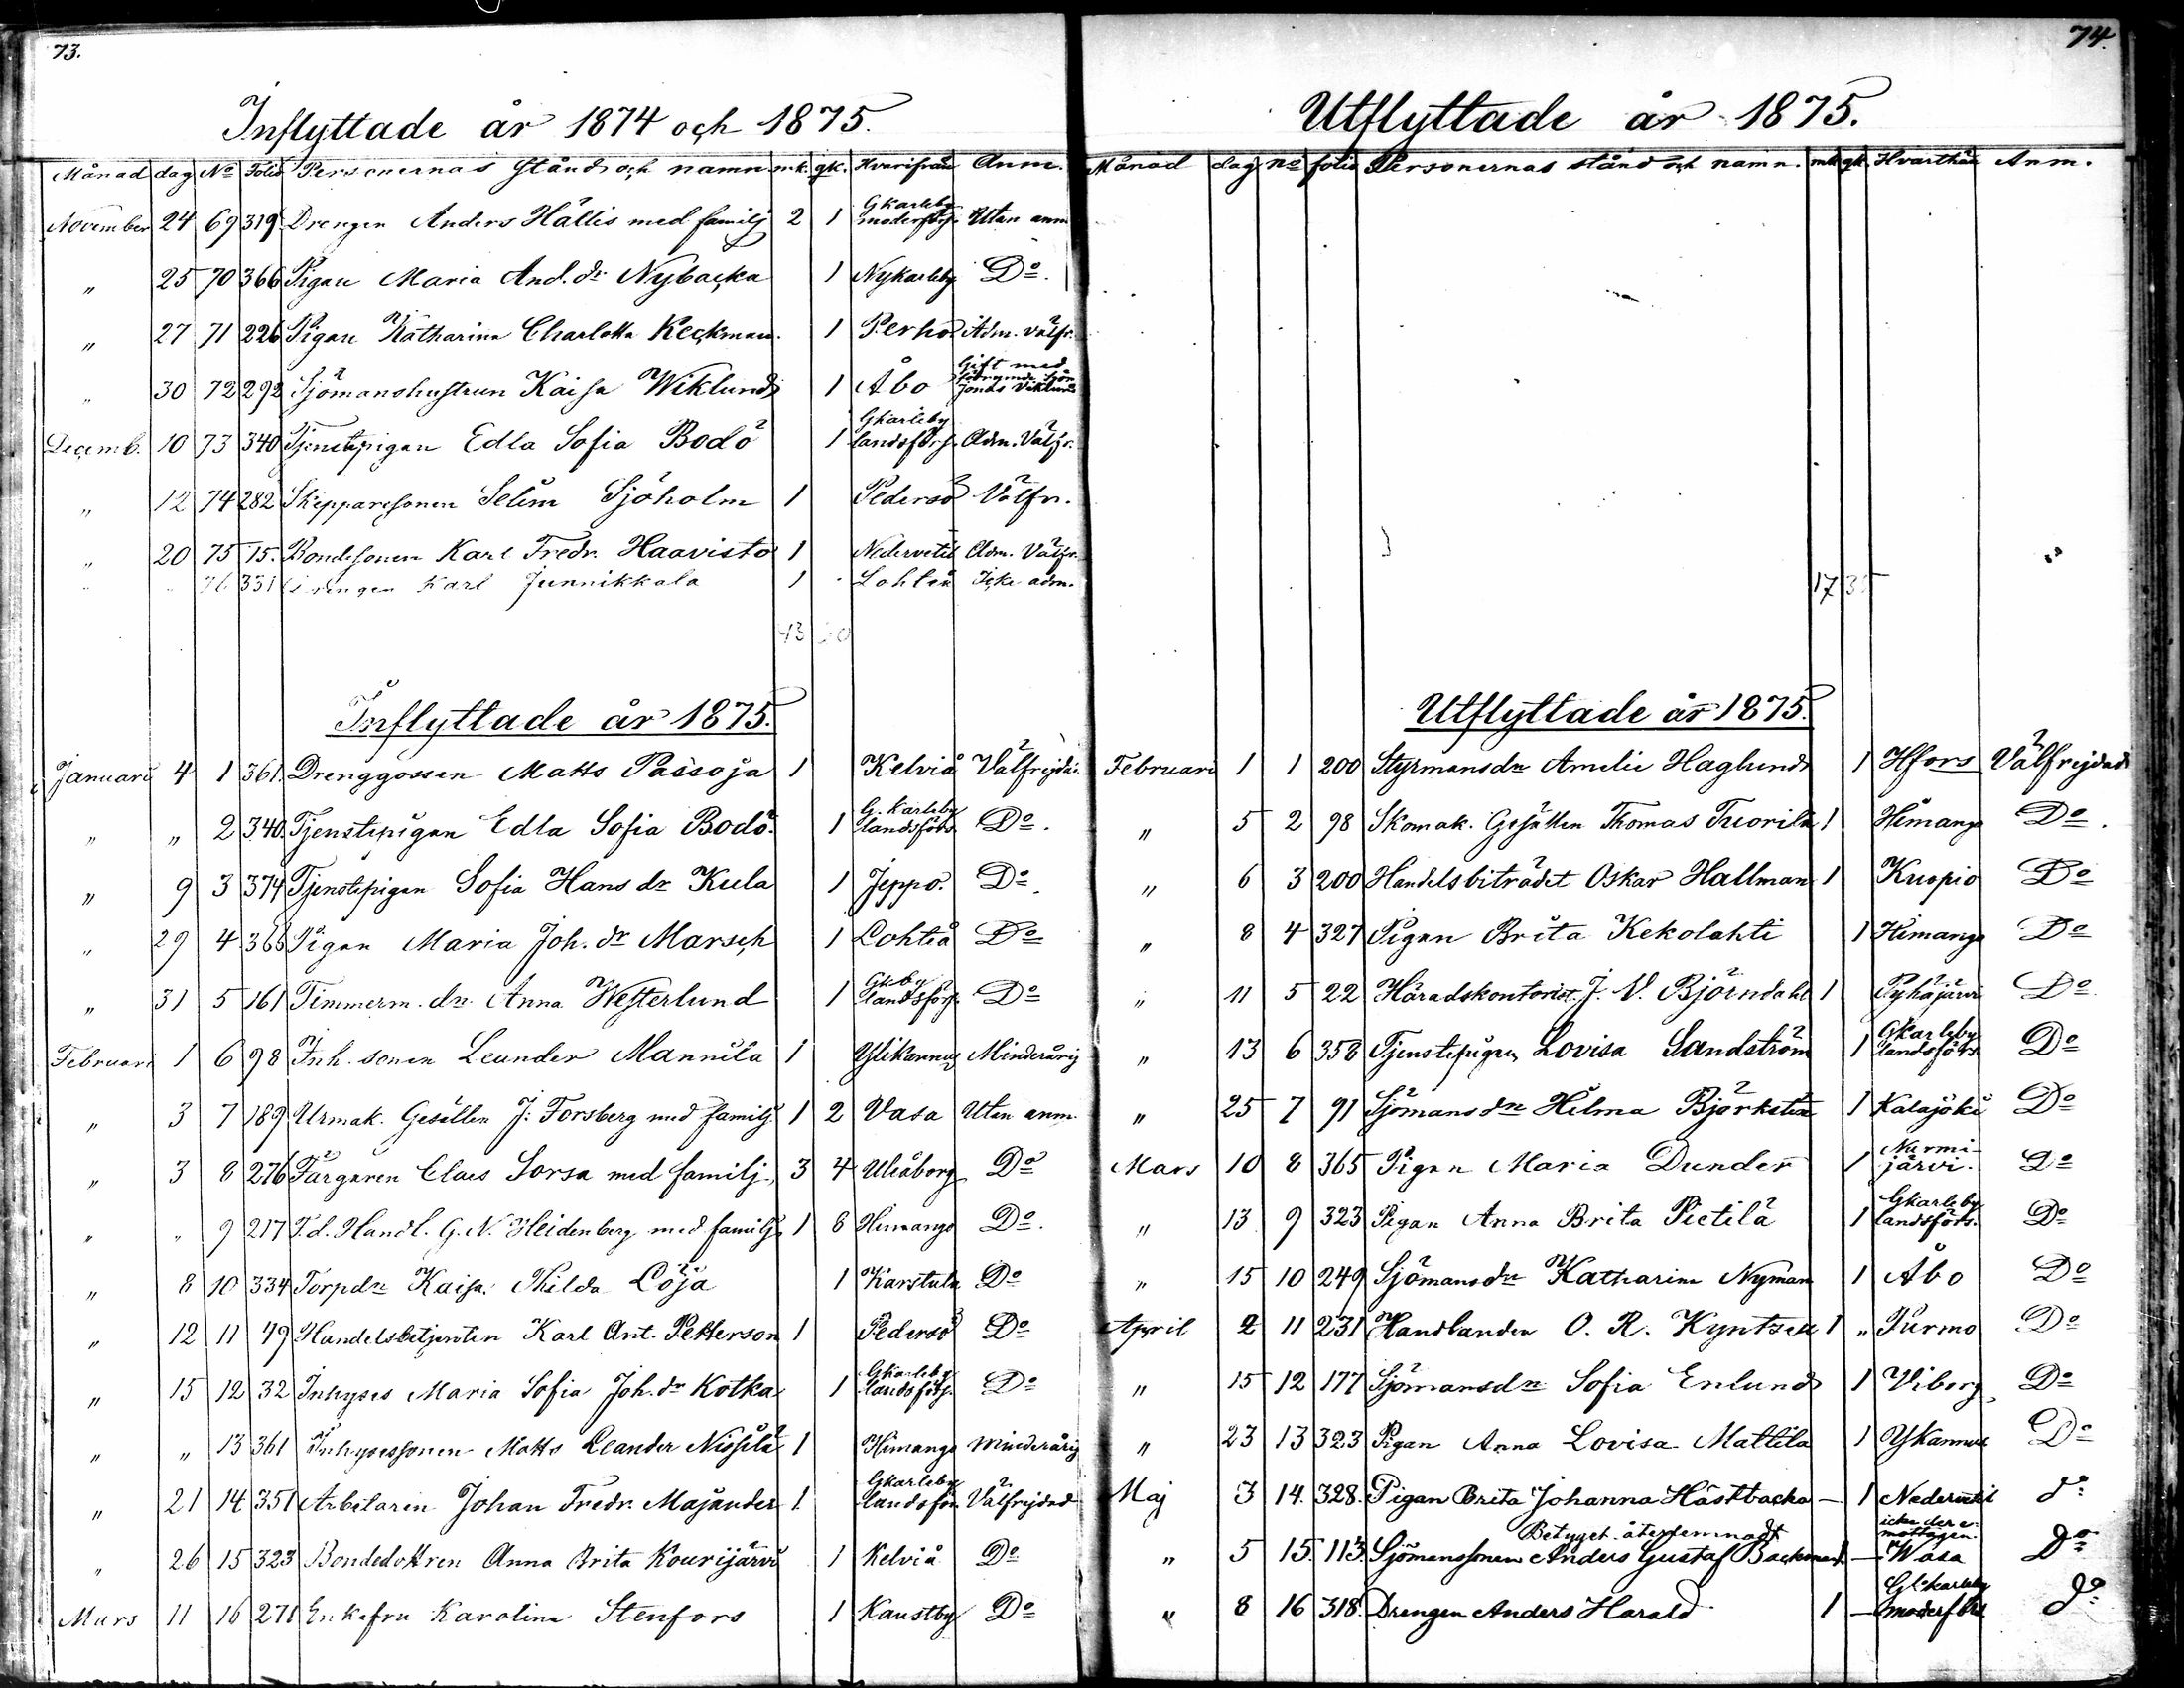 73.
Inflyttade år 1874 och 1875.
Månad dag No Folio Personernas stånd och namn mk. qk. Hvarifrån Anm.
November 24 69 319 Drengen Anders Hällis med familj 2 1 Gkarleby moderförs. Utan anm
" 25 70 366 Pigan Maria And. dr Nybacka 1 Nykarleby Do.
" 27 71 226 Pigan Katharina Charlotta Keckman. 1 Perho Adm. välfr.
" 30 72 292 Sjömanshustrun Kaisa Wiklund 1 Åbo Gift med Sjöm. Jonas Viklund
Decemb. 10 73 340 Tjenstepigan Edla Sofia Bodö 1 Gkarleby landsförs. Adm. Välfr.
" 12 74 282 Skepparesonen Selim Sjöholm 1 Pedersö Välfr.
" 20 75 15. Bondesonen Karl Fredr. Haavisto 1 Nedervetil Adm. Välfr.
" " 76 331 Drengen Karl Junnikkala 1 Lohteå Icke adm.
43
Inflyttade år 1875.
Januari 4 1 361. Drenggossen Matts Passoja 1 Kelviå Välfrejdad.
" " 2 340. Tjenstepigan Edla Sofia Bodö. 1 G. Karleby landsförs Do.
" 9 3 374 Tjenstepigan Sofia Hans dr Kula 1 Jeppo. Do.
" 29 4 366 Pigan Maria Joh. dr Marsch 1 Lohteå Do
" 31 5 161 Timmerm. dr. Anna Westerlund 1 Gkby landsförs. Do
Februari 1 6 98 Inh. sonen Leander Mannila 1 Ylikannus Minderårig
" 3 7 189 Urmak. Gesällen J. Forsberg med familj. 1 2 Vasa Utan anm.
" 3 8 276 Färgaren Claes Sorsa med familj. 3 4 Uleåborg Do
" " 9 217 F.d. Handl. G. N. Heidenberg med familj 1 6 Himango Do.
" 8 10 334 Torpdr Kaisa Thilda Löja 1 Karstula Do
" 12 11 49 Handelsbetjenten Karl Ant. Petterson 1 Pedersö Do
" 15 12 32 Inhyses Maria Sofia Joh. dr Kotka 1 Gkarleby landsförs. Do
" " 13 361 Inhysessonen Matts Leander Nissilä 1 Himango minderårig
" 21 14 351 Arbetaren Johan Fredr. Majander 1. Gkarleby landsför. Välfrejdad
" 26 15 323 Bondedottren Anna Brita Kourijärvi 1 Kelviå Do
Mars 11 16 271 Enkefru Karolina Stenfors 1 Kaustby Do
74.
Utflyttade år 1875.
Månad dag No folio Personernas stånd och namn. mk qk. Hvarthän Anm.
17
Utflyttade år 1875.
Februari 1 1 200 Styrmansdr Amelie Haglund 1 Hfors Välfrejdad
" 5 2 98 Skomak. Gesällen Thomas Tuorila 1 Himango Do.
" 6 3 200 Handelsbiträdet Oskar Hallman 1 Kuopio Do
" 8 4 327 Pigan Brita Kekolahti 1 Himango Do
" 11 5 22 Häradskontorist. J. V. Björndahl 1 Pyhäjärvi Do
" 13 6 358 Tjenstepigan Lovisa Sandström 1 Gkarleby landsförs Do
" 25 7 91 Sjömansdr Hilma Björksten 1 Kalajoki Do
Mars 10 8 365 Pigan Maria Dunder 1 Nurmijärvi. Do
" 13 9 323 Pigan Anna Brita Pietilä 1 Gkarleby landsförs. Do
" 15 10 249 Sjömansdr Katharina Nyman 1 Åbo Do
April 2 11 231 Handlanden O. R. Kyntzell 1 " Purmo Do
" 15 12 177 Sjömansdr Sofia Enlund 1 Viborg Do
" 23 13 323 Pigan Anna Lovisa Mattila 1 Ykannus Do
Maj 3 14. 328. Pigan Brita Johanna Hästbacka — 1 Nedervetil do
Betyget återlemnadt icke der emottagen.
" 5 15. 113. Sjömanssonen Anders Gustaf Backman 1. — Wasa Do
" 8 16 318. Drengen Anders Harald 1 — Glkarleby moderförs do